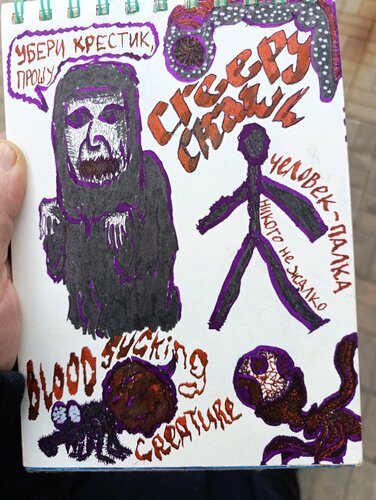 УБЕРИ КРЕСТИК,
ПРОШУ
creepy
crawl
ЧЕЛОВЕК-ПАЛКА
НИКОГО НЕ ЖАЛКО
BLOOD sucking
CREATURE